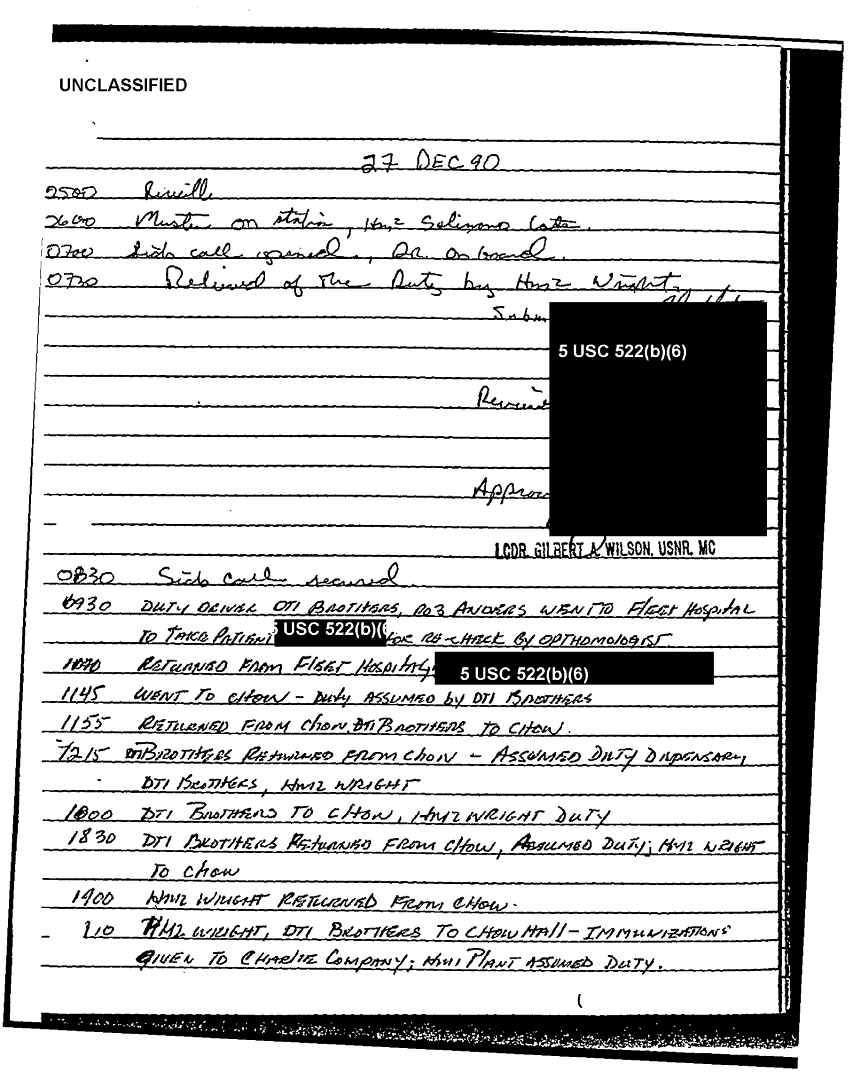 UNCLASSIFIED
27 DEC 90
0500 Reveille
0600 Muster on station, HM2 Late.
0700 Sick call opened, Dr. on board.
0730 Relieved of the Duty by HM2 Wright.
Subm
5 USC 522(b)(6)
Review
Approv
LCDR. GILBERT A. WILSON, USNR, MC
0830 Sick call secured.
0930 DUTY DRIVER DT1 BROTHERS, PO3 ANDERS WENT TO FLEET HOSPITAL
TO TAKE PATIENT USC 522(b)(6 FOR RE-CHECK BY OPTHOMOLOGIST.
RETURNED FROM FLEET HOSPITAL, 5 USC 522(b)(6)
1145 WENT TO CHOW - DUTY ASSUMED by DT1 BROTHERS
1155 RETURNED FROM CHOW, DT1 BROTHERS TO CHOW.
1215 DT1 BROTHERS RETURNED FROM CHOW - ASSUMED DUTY DISPENSARY,
DT1 BROTHERS, HM2 WRIGHT
1800 DT1 BROTHERS TO CHOW, HM2 WRIGHT DUTY
1830 DT1 BROTHERS RETURNED FROM CHOW, ASSUMED DUTY; HM2 WRIGHT
TO CHOW
1900 HM2 WRIGHT RETURNED FROM CHOW.
HM2 WRIGHT, DT1 BROTHERS TO CHOW HALL - IMMUNIZATIONS
GIVEN TO CHARLIE COMPANY; HM1 PLANT ASSUMED DUTY.